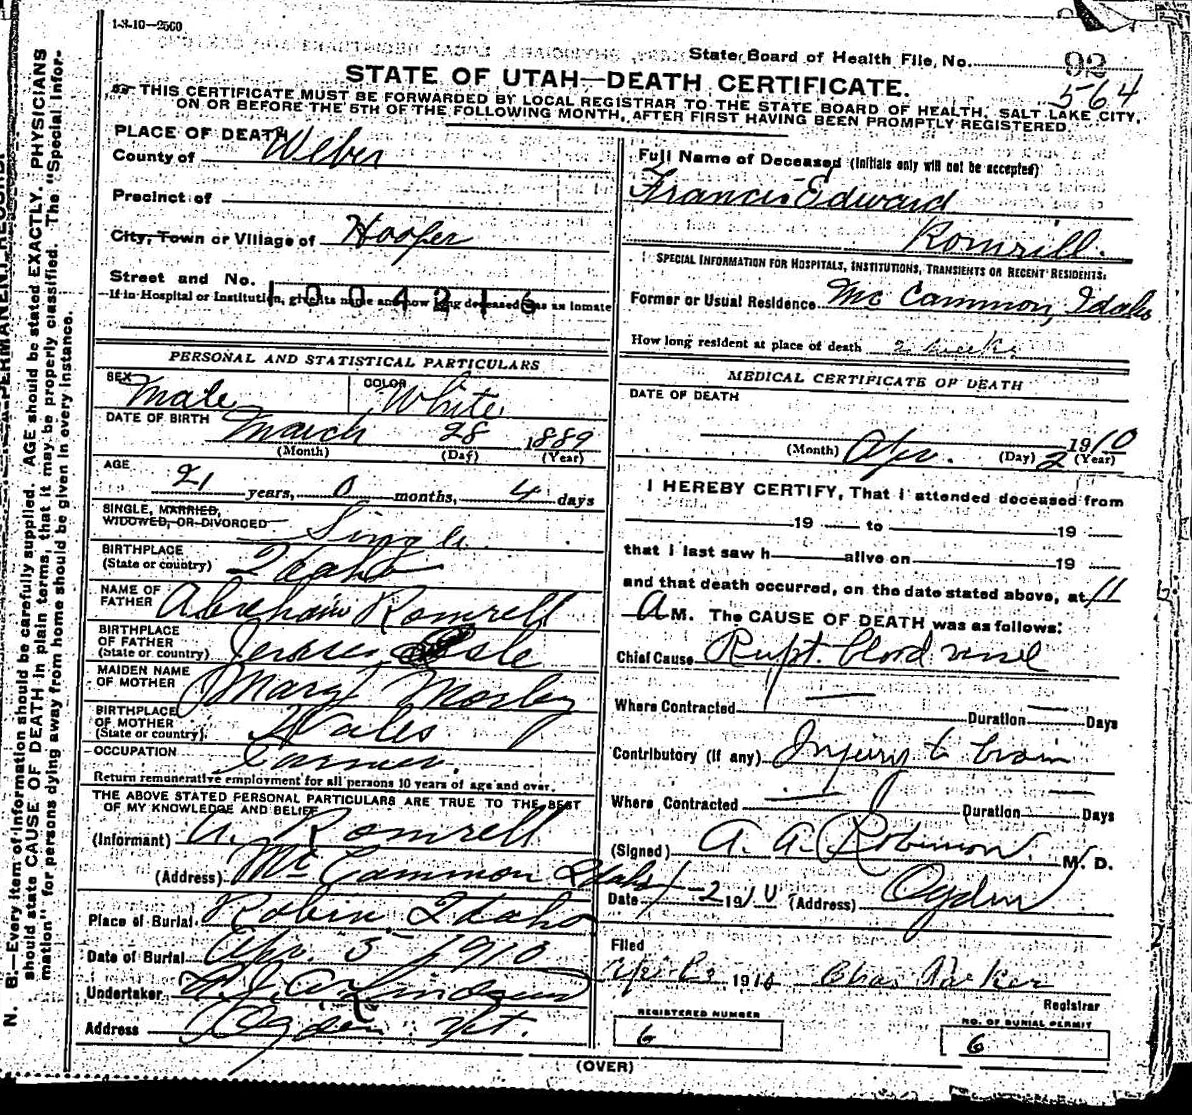 1-3-10-2500
State Board of Health File, No. 92
564
STATE OF UTAH—DEATH CERTIFICATE.
THIS CERTIFICATE MUST BE FORWARDED BY LOCAL REGISTRAR TO THE STATE BOARD OF HEALTH, SALT LAKE CITY,
ON OR BEFORE THE 5TH OF THE FOLLOWING MONTH, AFTER FIRST HAVING BEEN PROMPTLY REGISTERED.
PLACE OF DEATH
County of Weber
Precinct of
City, Town or Village of Hooper
Street and No.
1004216
If in Hospital or Institution, give its name and how long deceased was as inmate
PERSONAL AND STATISTICAL PARTICULARS
SEX Male COLOR White
DATE OF BIRTH March 28 1889
(Month) (Day) (Year)
AGE
21 years, 0 months, 4 days
SINGLE, MARRIED,
WIDOWED, OR DIVORCED Single
BIRTHPLACE
(State or country) Idaho
NAME OF
FATHER Abraham Romrell
BIRTHPLACE
OF FATHER
(State or country) Isle
MAIDEN NAME
OF MOTHER Mary Mosley
BIRTHPLACE
OF MOTHER
(State or country) Wales
OCCUPATION Farmer.
Return remunerative employment for all persons 10 years of age and over.
THE ABOVE STATED PERSONAL PARTICULARS ARE TRUE TO THE BEST
OF MY KNOWLEDGE AND BELIEF
(Informant) A. Romrell
(Address) Mc Cammon Idaho
Place of Burial Robin Idaho
Date of Burial Apr. 5 1910
Undertaker
Address Ogden Ut.
Full Name of Deceased (Initials only will not be accepted)
Francis Edward
Romrill.
SPECIAL INFORMATION FOR HOSPITALS, INSTITUTIONS, TRANSIENTS OR RECENT RESIDENTS:
Former or Usual Residence Mc Cammon, Idaho
How long resident at place of death 2 weeks
MEDICAL CERTIFICATE OF DEATH
DATE OF DEATH
1910
(Month) Apr. (Day) 2 (Year)
I HEREBY CERTIFY, That I attended deceased from
19 to 19
that I last saw h alive on 19
and that death occurred, on the date stated above, at 11
A M. The CAUSE OF DEATH was as follows:
Chief Cause Rupt. blood vessel
Where Contracted — Duration — Days
Contributory (if any) Injury to brain
Where Contracted — Duration — Days
(Signed) A. A. Robinson. M. D.
Date 4-2 1910 (Address) Ogden
Filed
1910 Chas Parker
Registrar
REGISTERED NUMBER
6
NO. OF BURIAL PERMIT
6
(OVER)
PERMANENT RECORD.
N. B.—Every item of information should be carefully supplied. AGE should be stated EXACTLY. PHYSICIANS
should state CAUSE OF DEATH in plain terms, that it may be properly classified. The "Special Infor-
mation" for persons dying away from home should be given in every instance.